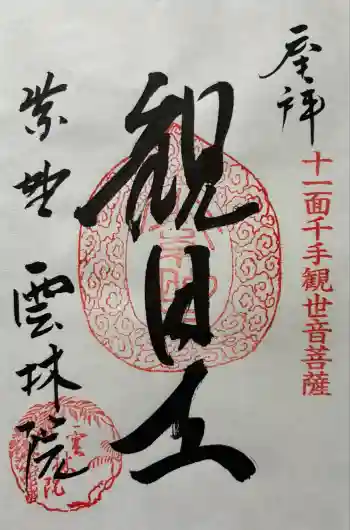 奉拝
十一面千手観世音菩薩
観自在
紫野 雲林院